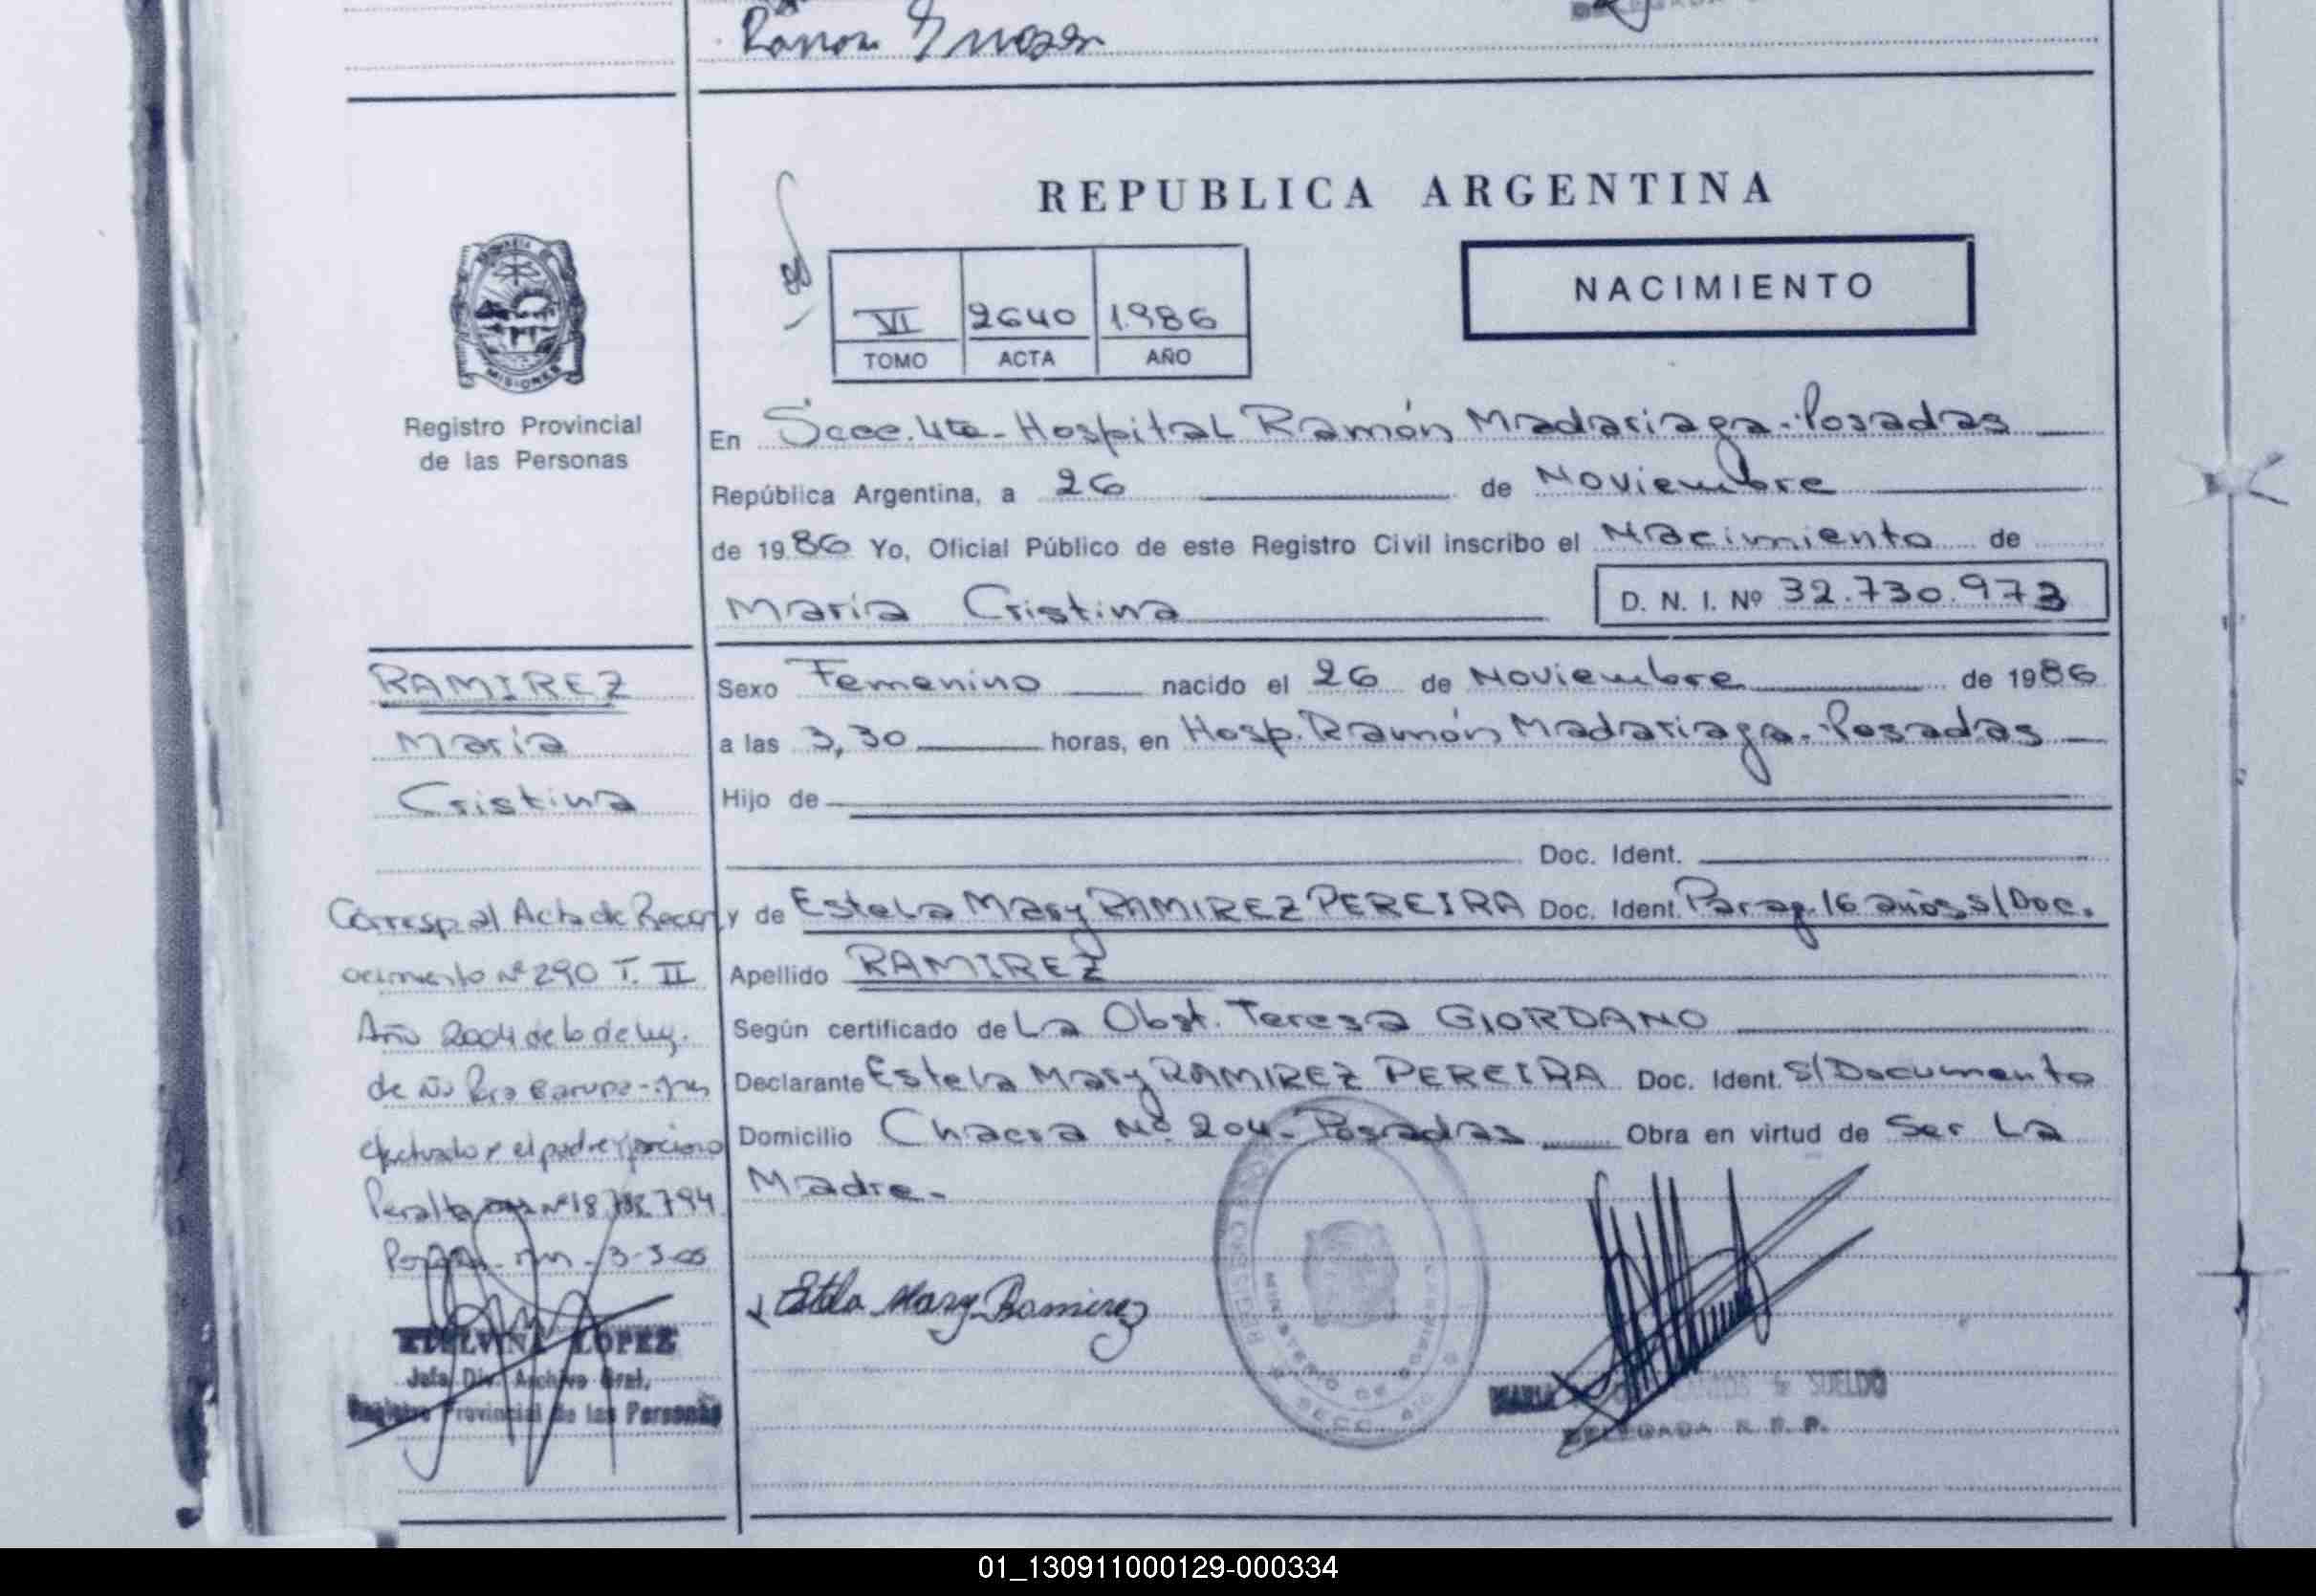 Ramon
REPUBLICA ARGENTINA
NACIMIENTO
VI 2640 1.986
TOMO ACTA AÑO
MISIONES
Registro Provincial
de las Personas
En Sccc. 4ta- Hospital Ramón Madariaga.-Posadas
República Argentina, a 26 de Noviembre
de 1986 Yo, Oficial Público de este Registro Civil inscribo el Nacimiento de
María Cristina D. N. I. Nº 32.730.973
RAMIREZ
María
Cristina
Sexo Femenino nacido el 26 de Noviembre de 1986
a las 3,30 horas, en Hosp. Ramón Madariaga.-Posadas
Hijo de
Doc. Ident.
y de Estela Mary RAMIREZ PEREIRA Doc. Ident. Parag. 16 años s/Doc.
Apellido RAMIREZ
Según certificado de La Obst. Teresa GIORDANO
Declarante Estela Mary RAMIREZ PEREIRA Doc. Ident. S/Documento
Domicilio Chacra Nº 204- Posadas Obra en virtud de Ser La
Madre-
Corresp. al Acta de Recon
ocimiento Nº 290 T. II
Año 2004 de
efectuado el padre
Peralta
3-3-05
Estela Mary Ramirez
LOPEZ
Jefa Div. Archivo Gral.
Registro Provincial de las Personas
MINISTERIO DE
MARIA SUELDO
DELEGADA R. P. P.
01_130911000129-000334